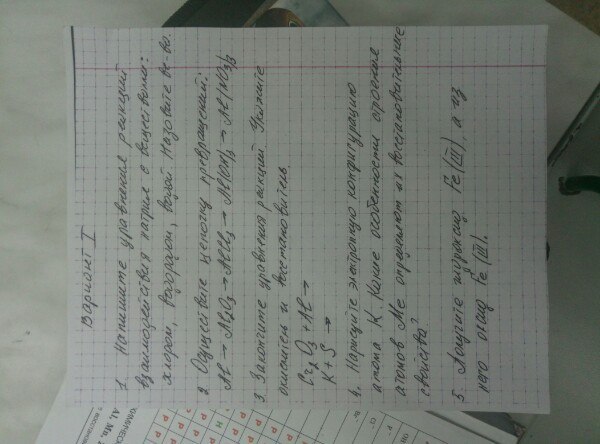 Вариант I
1. Напишите уравнения реакций
взаимодействия натрия с веществами:
хлором, водородом, водой. Назовите в-ва.
2. Осуществите цепочку превращений:
Al → Al₂O₃ → AlCl₃ → Al(OH)₃ → Al(NO₃)₃
3. Закончите уравнения реакций. Укажите
окислитель и восстановитель.
Cr₂O₃ + Al →
K + S →
4. Нарисуйте электронную конфигурацию
атома К. Какие особенности строения
атомов Ме определяют их восстановительные
свойства?
5. Получите гидроксид Fe (III), а из
него оксид Fe (III).
Al, Mn,